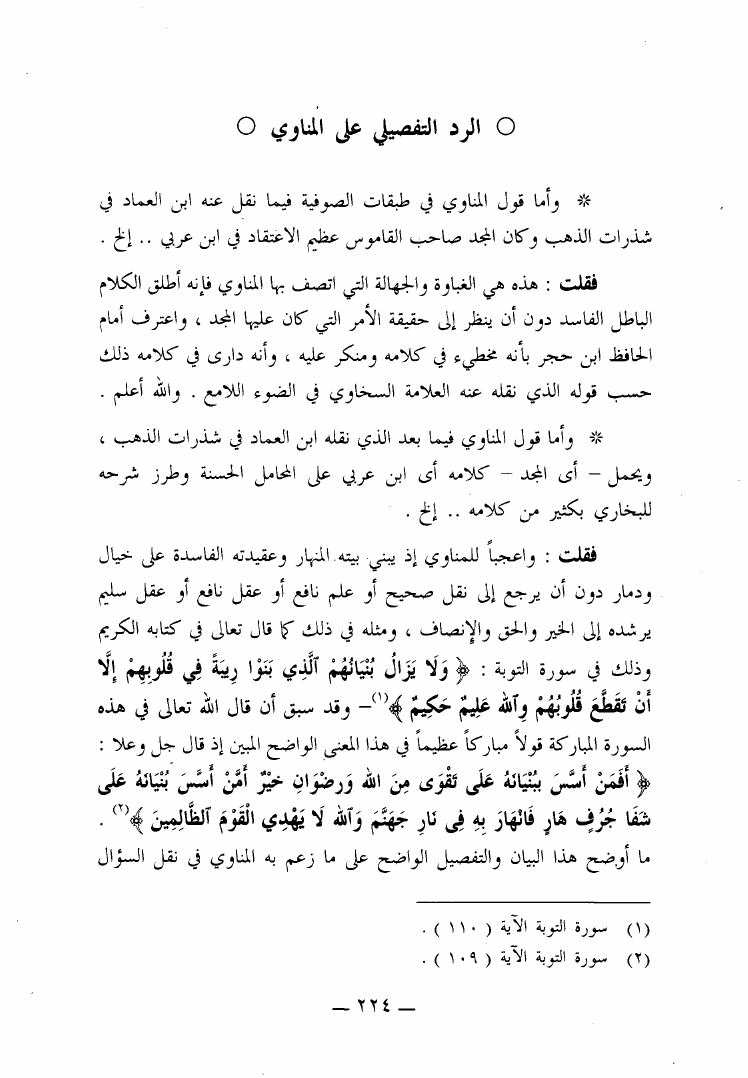 ○ الرد التفصيلي على المناوي ○
* وأما قول المناوي في طبقات الصوفية فيما نقل عنه ابن العماد في
شذرات الذهب وكان المجد صاحب القاموس عظيم الاعتقاد في ابن عربي .. إلخ .
فقلت : هذه هي الغباوة والجهالة التي اتصف بها المناوي فإنه أطلق الكلام
الباطل الفاسد دون أن ينظر إلى حقيقة الأمر التي كان عليها المجد ، واعترف أمام
الحافظ ابن حجر بأنه مخطيء في كلامه ومنكر عليه ، وأنه دارى في كلامه ذلك
حسب قوله الذي نقله عنه العلامة السخاوي في الضوء اللامع . والله أعلم .
* وأما قول المناوي فيما بعد الذي نقله ابن العماد في شذرات الذهب ،
ويحمل – أى المجد – كلامه أى ابن عربي على المحامل الحسنة وطرز شرحه
للبخاري بكثير من كلامه .. إلخ .
فقلت : واعجباً للمناوي إذ يبني بيته المنهار وعقيدته الفاسدة على خيال
ودمار دون أن يرجع إلى نقل صحيح أو علم نافع أو عقل نافع أو عقل سليم
يرشده إلى الخير والحق والإنصاف ، ومثله في ذلك كما قال تعالى في كتابه الكريم
وذلك في سورة التوبة : ﴿ وَلَا يَزَالُ بُنْيَانُهُمُ ٱلَّذِي بَنَوْا رِيبَةً فِي قُلُوبِهِمْ إِلَّا
أَنْ تَقَطَّعَ قُلُوبُهُمْ وَٱللَّه عَلِيمٌ حَكِيمٌ ﴾(١)– وقد سبق أن قال الله تعالى في هذه
السورة المباركة قولاً مباركاً عظيماً في هذا المعنى الواضح المبين إذ قال جل وعلا :
﴿ أَفَمَنْ أَسَّسَ بُنْيَانَهُ عَلَى تَقْوَى مِنَ الله وَرِضْوَانٍ خَيْرٌ أَمَّنْ أَسَّسَ بُنْيَانَهُ عَلَى
شَفَا جُرُفٍ هَارٍ فَانْهَارَ بِهِ فِى نَارِ جَهَنَّمَ وَٱللَّه لَا يَهْدِي الْقَوْمَ ٱلظَّالِمِينَ ﴾(٢) .
ما أوضح هذا البيان والتفصيل الواضح على ما زعم به المناوي في نقل السؤال
(١) سورة التوبة الآية ( ١١٠ ) .
(٢) سورة التوبة الآية ( ١٠٩ ) .
— ٢٢٤ —